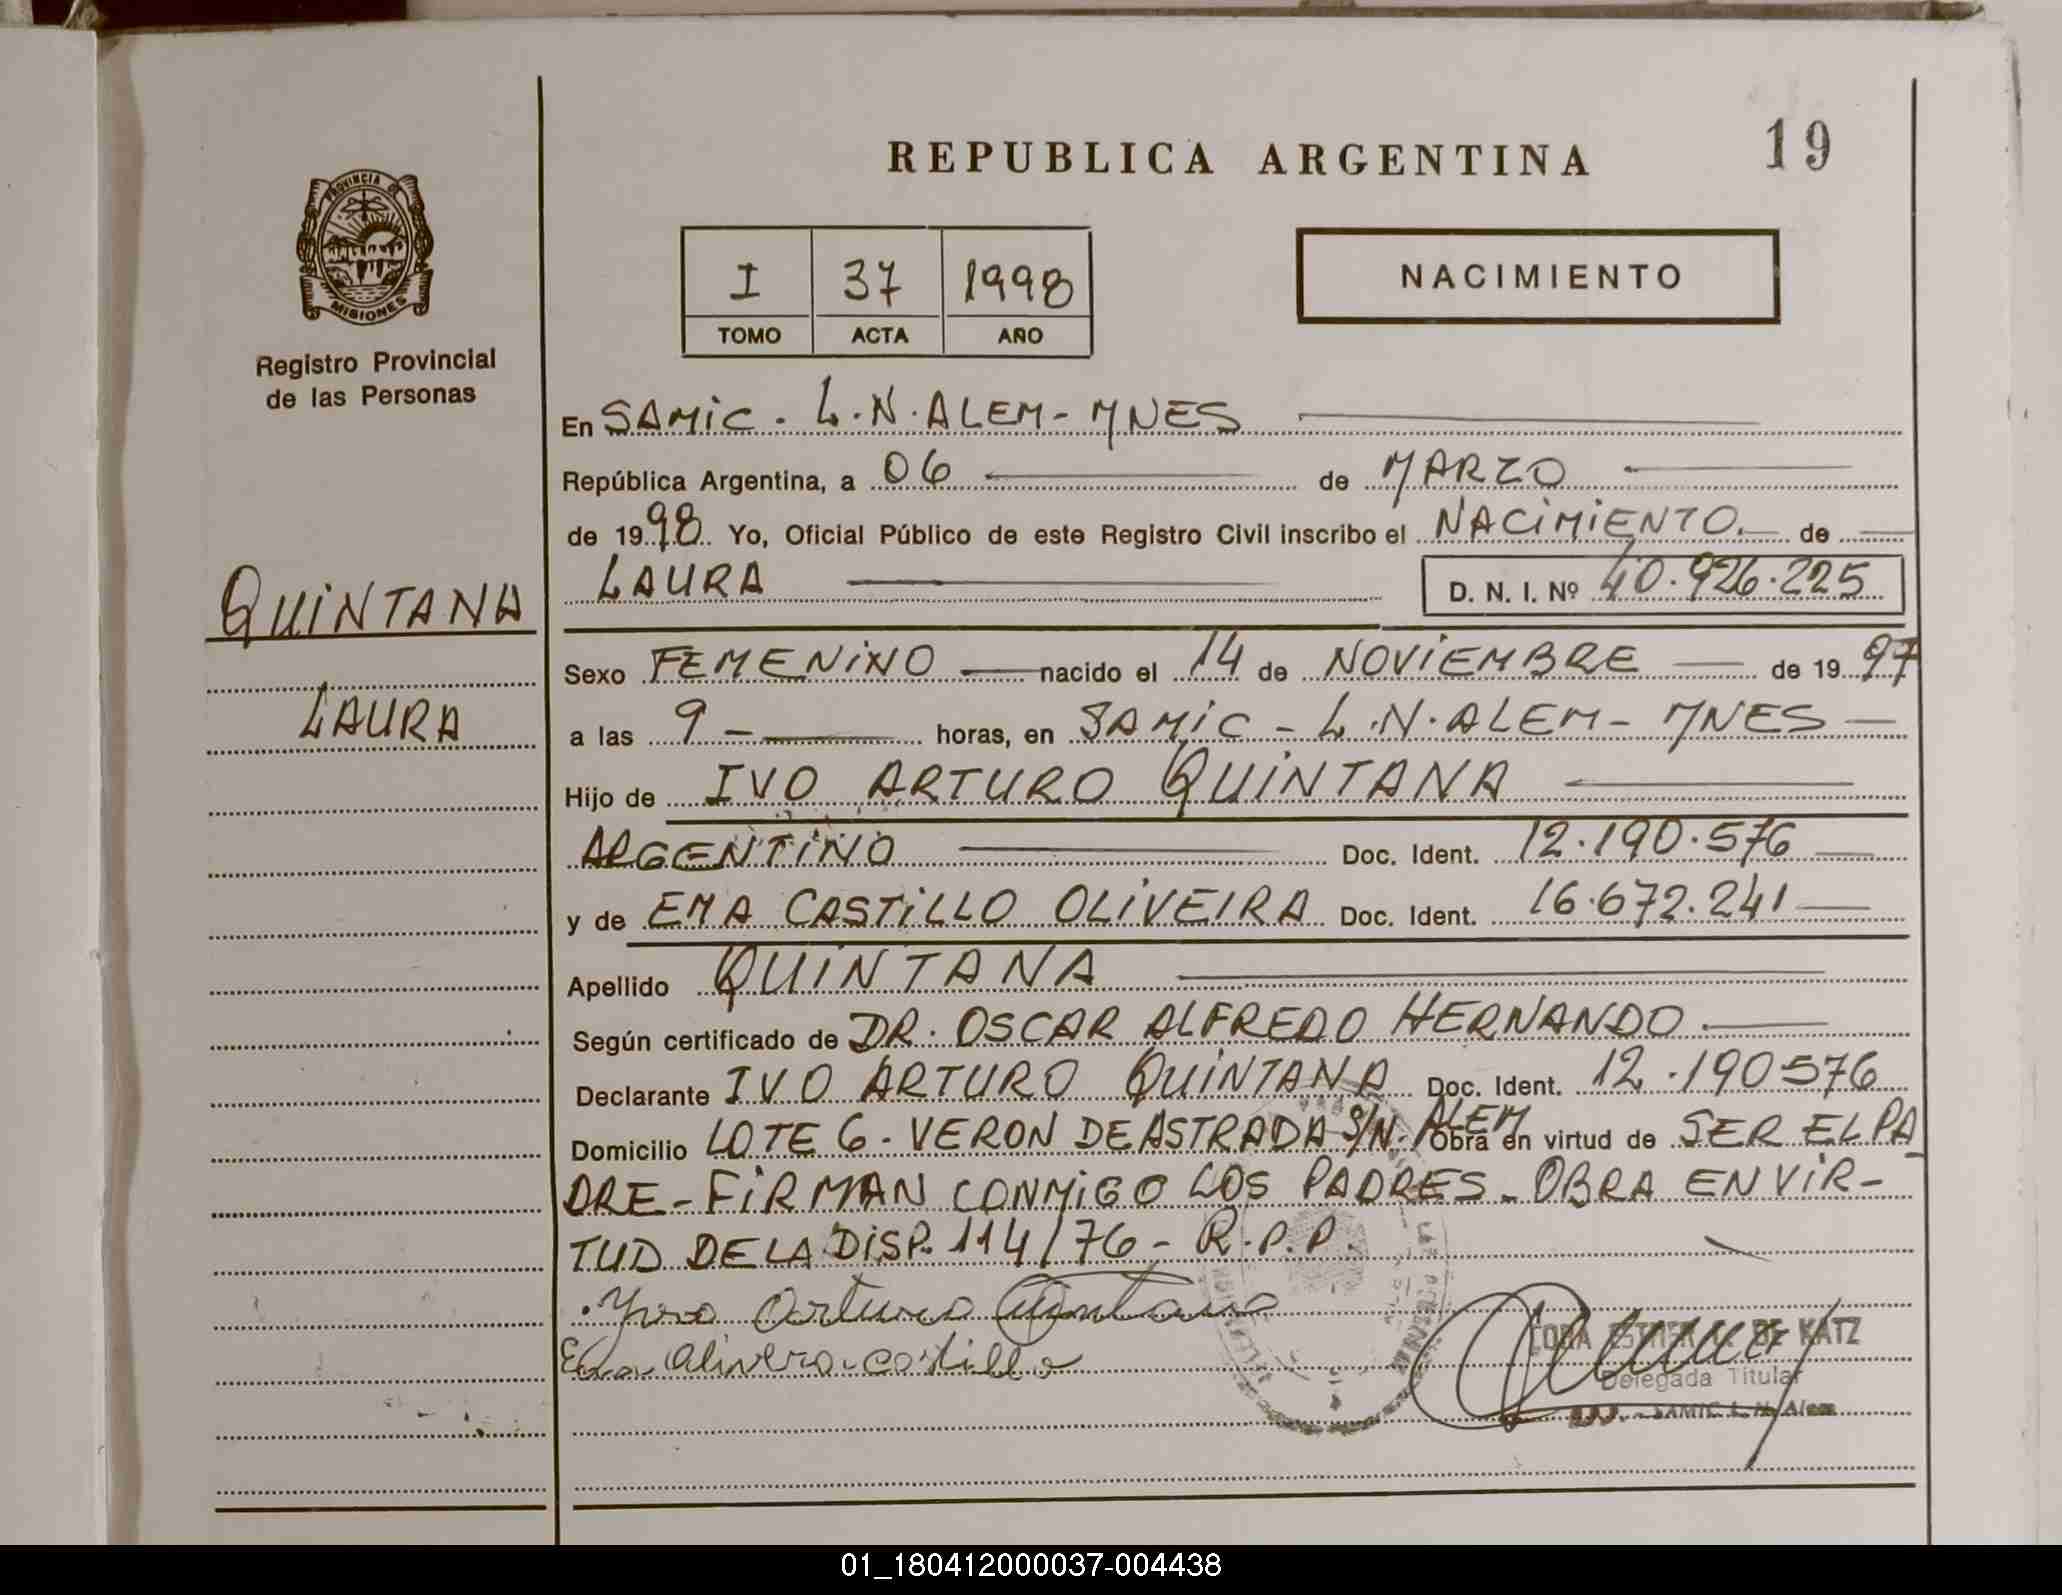 REPUBLICA ARGENTINA
19
PROVINCIA DE
MISIONES
Registro Provincial
de las Personas
I 37 1998
TOMO ACTA AÑO
NACIMIENTO
QUINTANA
LAURA
En SAMIC. L.N. ALEM - MNES
República Argentina, a 06 de MARZO
de 1998 Yo, Oficial Público de este Registro Civil inscribo el NACIMIENTO. de
LAURA D. N. I. Nº 40.926.225
Sexo FEMENINO nacido el 14 de NOVIEMBRE de 1997
a las 9 - horas, en SAMIC - L.N. ALEM - MNES
Hijo de IVO ARTURO QUINTANA
ARGENTINO Doc. Ident. 12.190.576
y de EMA CASTILLO OLIVEIRA Doc. Ident. 16.672.241
Apellido QUINTANA
Según certificado de DR. OSCAR ALFREDO HERNANDO
Declarante IVO ARTURO QUINTANA Doc. Ident. 12.190576
Domicilio LOTE 6 - VERON DE ASTRADA S/N. ALEM Obra en virtud de SER EL PA
DRE - FIRMAN CONMIGO LOS PADRES - OBRA EN VIR-
TUD DE LA DISP. 114/76 - R.P.P.
Ivo Arturo Quintana
Ema Olivera Castillo
DE KATZ
Delegada Titular
SAMIC L. N. Alem
01_180412000037-004438